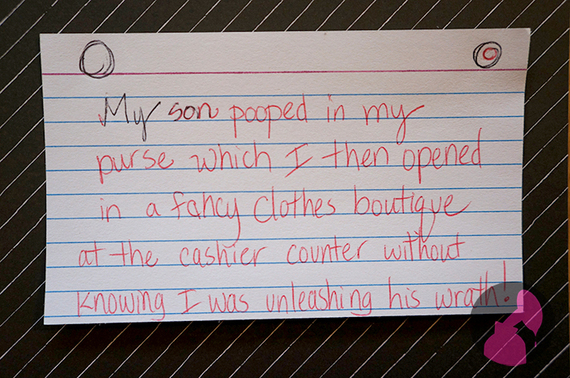 My son pooped in my
purse which I then opened
in a fancy clothes boutique
at the cashier counter without
knowing I was unleashing his wrath!